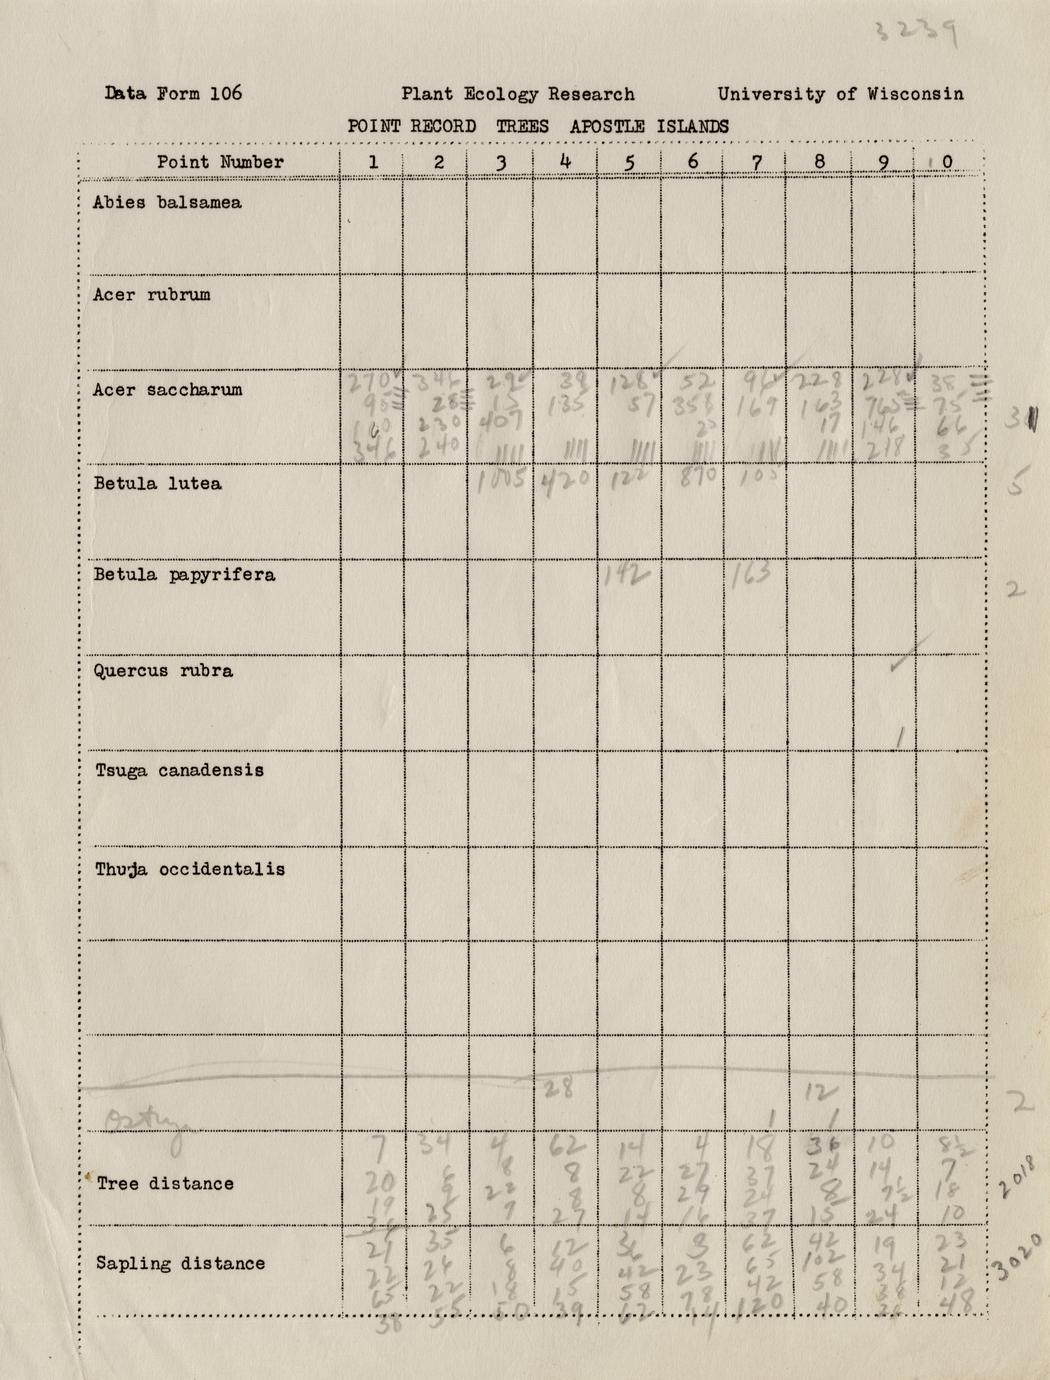 3239
Data Form 106 Plant Ecology Research University of Wisconsin
POINT RECORD TREES APOSTLE ISLANDS
Point Number 1 2 3 4 5 6 7 8 9 10
Abies balsamea
Acer rubrum
Acer saccharum 270 346 29 39 128 52 96 228 228 38
95 28 15 135 57 358 169 163 765 75
160 230 407 17 146 66
346 240 //// //// //// //// //// //// 218 35
Betula lutea 1005 420 122 870 105 5
Betula papyrifera 142 163 2
Quercus rubra
1
Tsuga canadensis
Thuja occidentalis
28 12 2
Ostrya 1 1
7 34 4 62 14 4 18 36 10 8½
20 6 8 8 22 27 37 24 14 7
Tree distance 2018
19 22 8 8 29 24 8 7½ 18
36 25 7 27 14 16 37 15 24 10
21 35 6 12 36 8 62 42 19 23
Sapling distance 3020
22 26 8 40 42 23 65 102 34 21
65 22 18 15 58 78 42 58 38 12
38 55 50 39 62 14 120 40 36 48